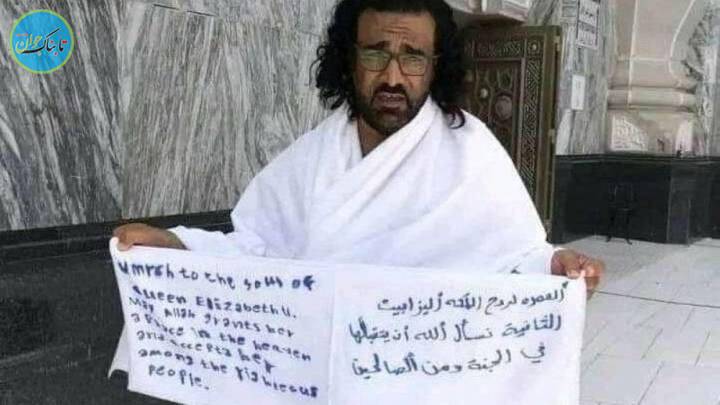 تابناک جوان
Umrah to the soul of
Queen Elizabeth II.
May Allah grants her
a place in the heaven
and accepts her
among the righteous
people.
العمره لروح الملكه أليزابيت
الثانية نسأل الله أن يتقبلها
في الجنة ومن الصالحين